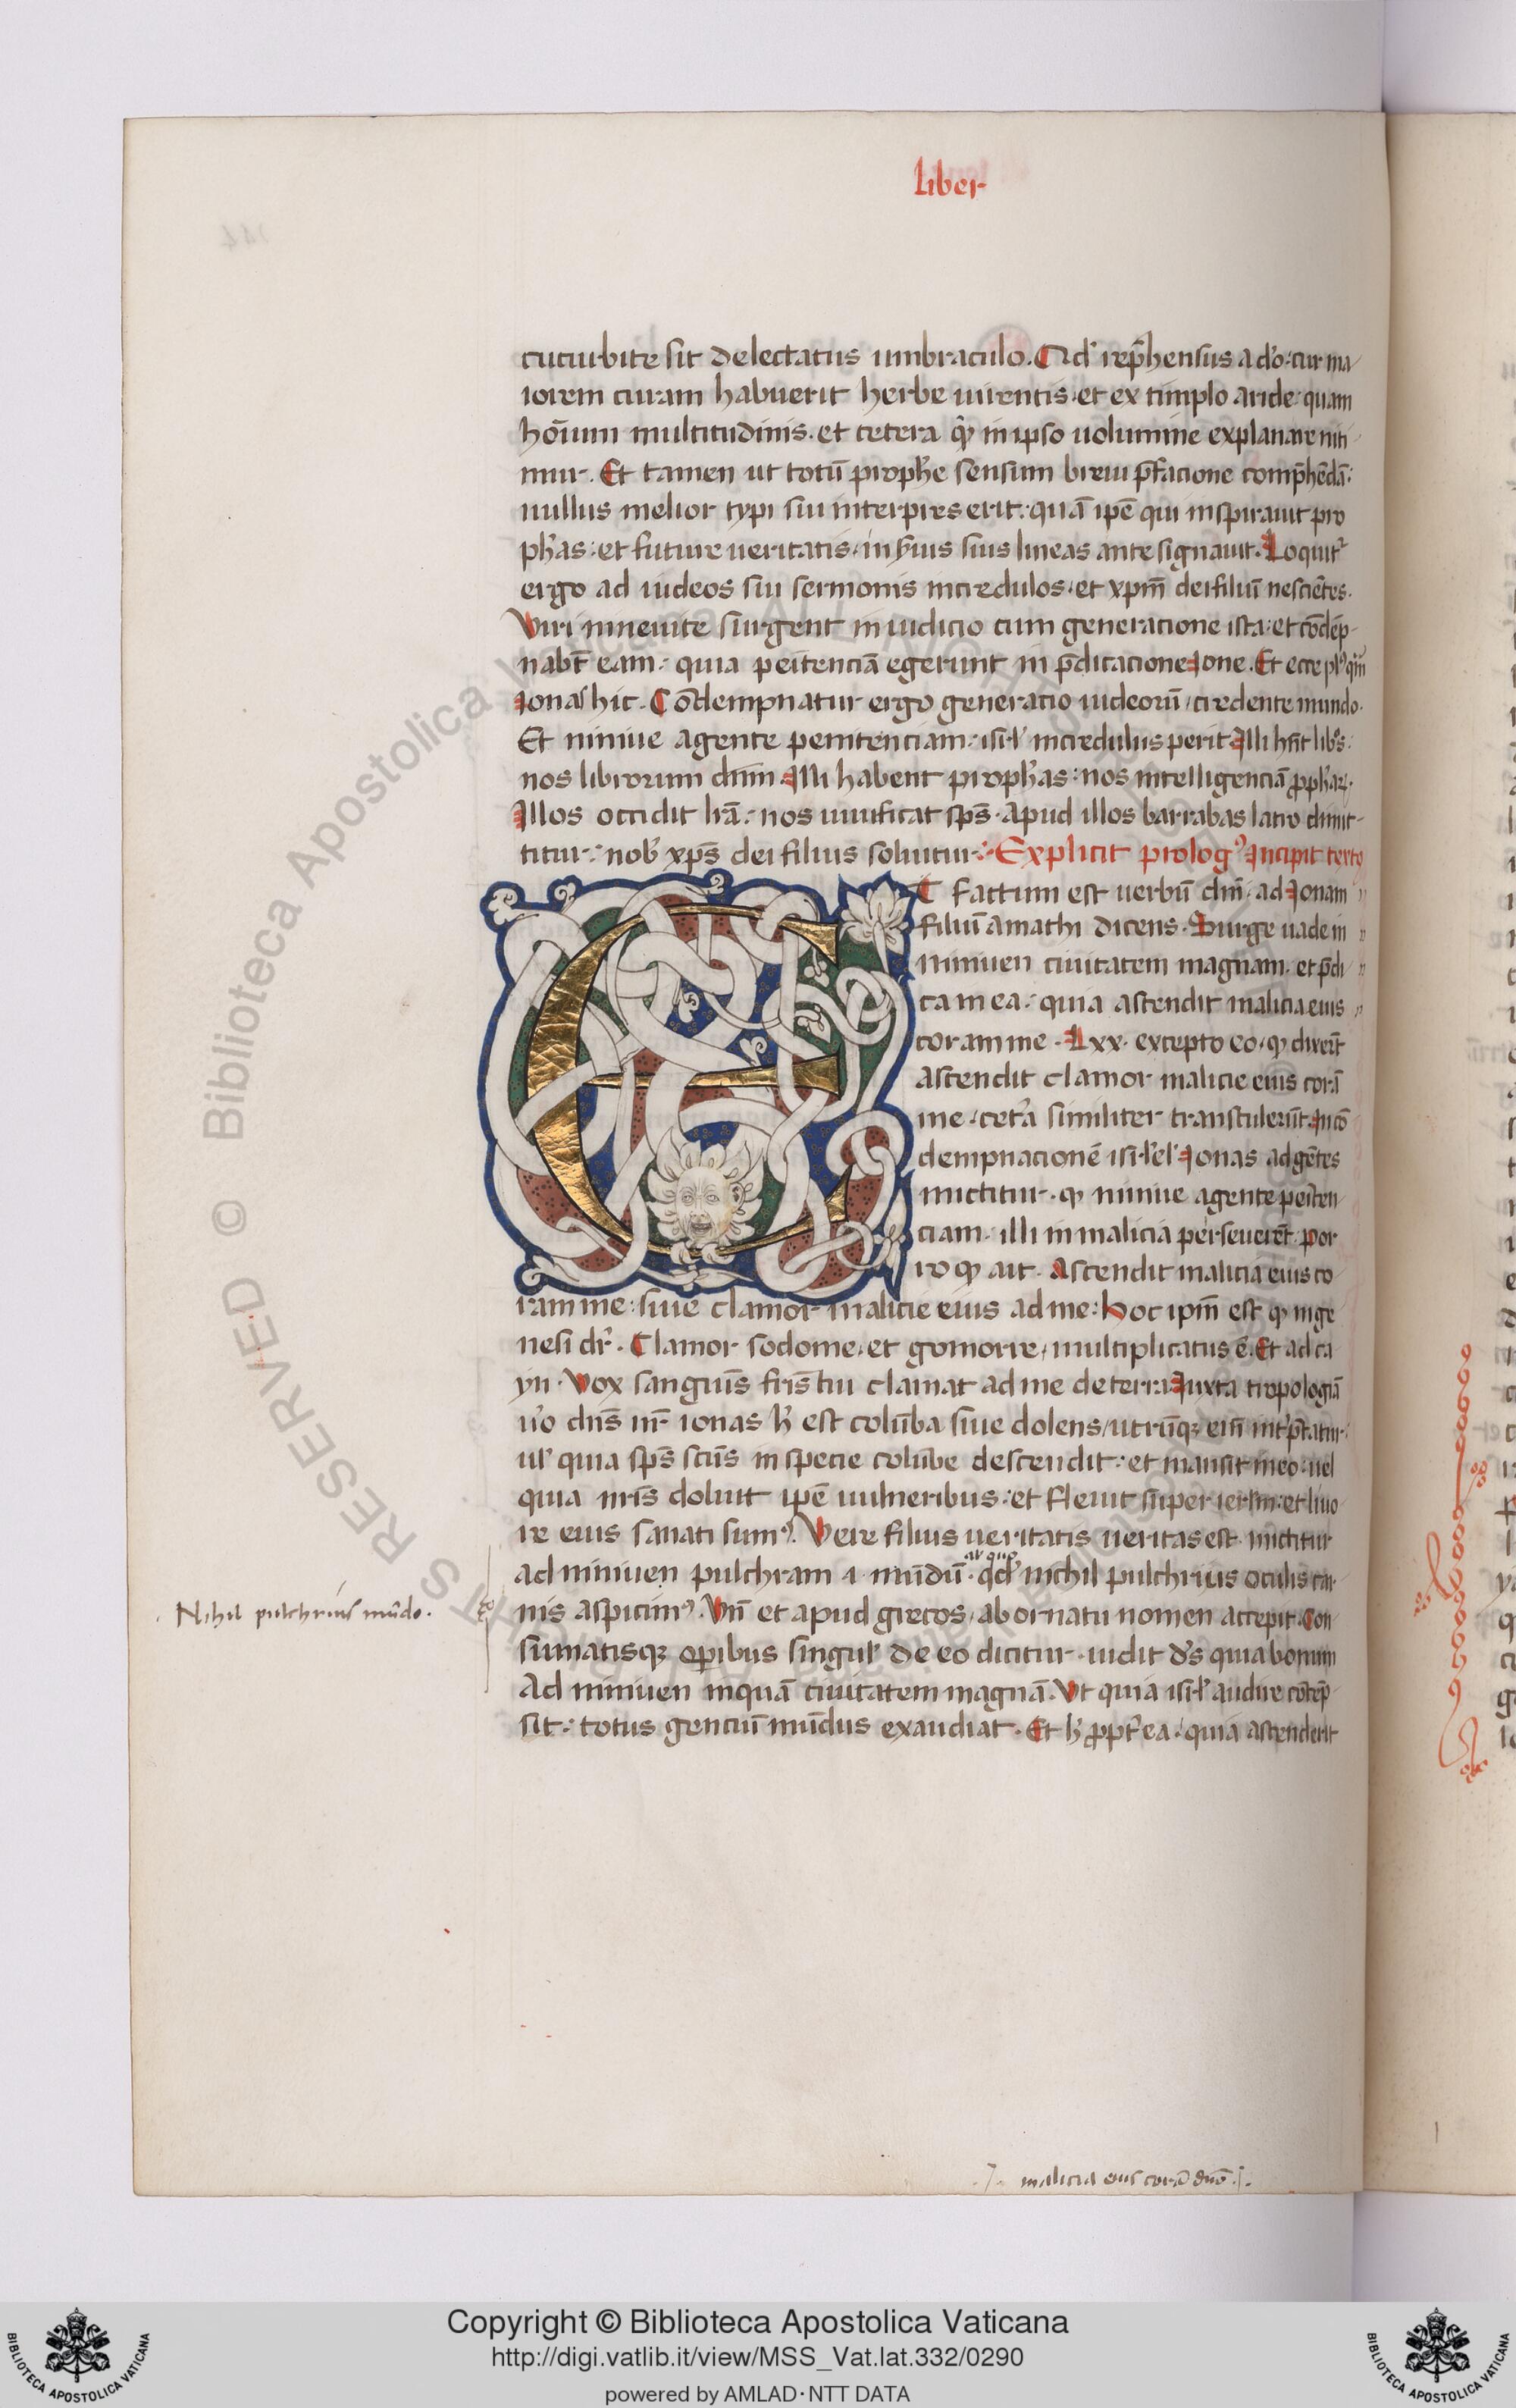 liber
cucurbite sit delectatus umbraculo. Qd' rep̄hensus a d'o. cur ma
iorem curam habuerit herbe uirentis. et ex timplo aride. quam
hōium multitudinis. et cetera q̄ in ipso uolumine explanare niti
mur. Et tamen ut totū prophe sensum breui p̄facione comp̄hēdā:
nullus melior typi sui interpres erit: quā ipē qui inspirauit pro
phas: et future ueritatis, in s̄uis suis lineas ante signauit. Loquit᷑
ergo ad iudeos sui sermonis incredulos. et xpm̄ dei filiū nesciētes.
Viri niniuite surgent in iudicio cum generacione ista: et cōdēp
nabt̄ eam: quia peitenciā egerunt in p̄dicacione Ione. Et ecce pl' q̄m
Ionas hic. Cōdempnatur ergo generatio iudeorū, credente mundo.
Et niniue agente penitenciam: isr̄l' incredulus perit. Illi hn̄t lib's:
nos librorum dn̄m. Illi habent prophas: nos intelligenciā p̄phaꝝ.
Illos occidit lr̄a: nos uiuificat sp̄s. Apud illos barrabas latro dimit
titur: nob' xp̄s dei filius soluitur. Explicit prolog' Incipit textꝰ
Et factum est uerbū dn̄i. ad Ionam
filiū amathi dicens. Surge uade in
niniuen ciuitatem magnam. et p̄di
ca in ea: quia ascendit malicia eius
coram me. Lxx. excepto eo, qd' dixer̄t
ascendit clamor malicie eius corā
me, cet'a similiter transtulerūt. In cō
dempnacionē isr̄l'el' Ionas ad gētes
mictitur. qd' niniue agente peiten
ciam: illi in malicia perseuerēt. por
ro qd' ait. Ascendit malicia eius co
ram me: siue clamor malicie eius ad me: hoc ipm̄ est qd' in ge
nesi dr̄. Clamor sodome. et gomorre, multiplicatus ē. Et ad ca
yn. Vox sanguīs fris tui clamat ad me de terra. Iuxta tropologiā
u'o dn̄s nr̄ ionas h' est colūba siue dolens, utrūqꝫ ēm int'p̄tatur:
ul' quia sp̄s scūs in specie colūbe descendit: et mansit in eo: uel
quia nris doluit ipē uulneribus: et fleuit super ierl'm: et liuo
re eius sanati sumꝰ. Vere filius ueritatis ueritas est. mictitur
ad niniuen pulchram .i. mūdū. qd' nichil pulchrius oculis car
nis aspicimꝰ. Vn̄ et apud grecos, ab ornatu nomen accepit. Con
sumatisqꝫ opibus singul' de eo dicitur. uidit d's quia bonum
Ad niniuen inquā ciuitatem magnā. Vt quia isr̄l' audire cōtēp
sit: totus genciū mūdus exaudiat. Et h' p̄pt'ea: quia ascenderit
Nihil pulchrius mūdo.
malicia eius corā dn̄o
Ionas
RESERVED © Biblioteca Apostolica Vaticana
Copyright © Biblioteca Apostolica Vaticana
http://digi.vatlib.it/view/MSS_Vat.lat.332/0290
powered by AMLAD·NTT DATA
BIBLIOTECA APOSTOLICA VATICANA
BIBLIOTECA APOSTOLICA VATICANA